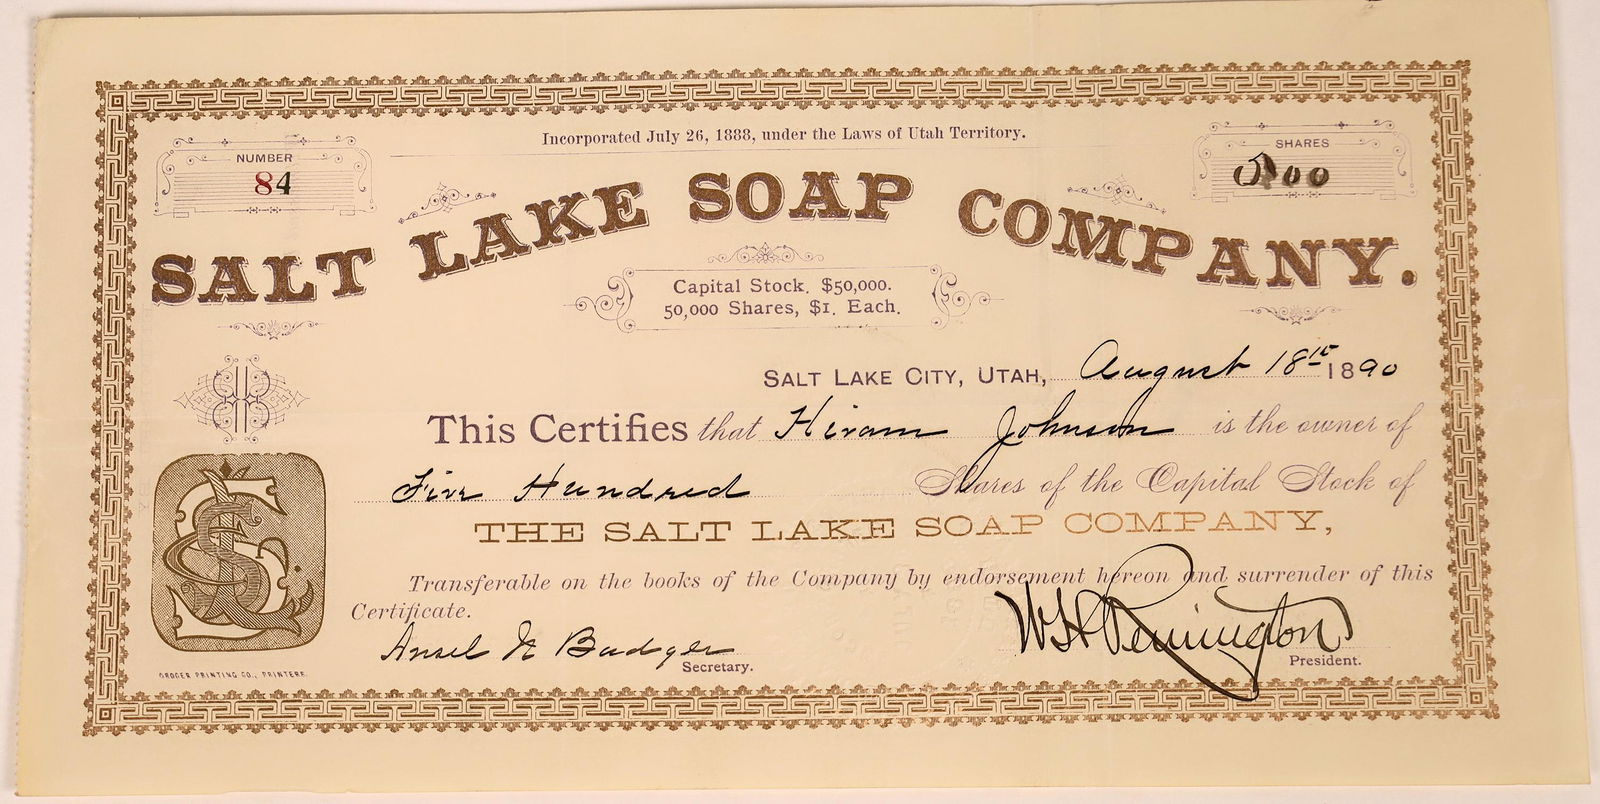 Incorporated July 26, 1888, under the Laws of Utah Territory.
NUMBER
84
SHARES
500
SALT LAKE SOAP COMPANY.
Capital Stock, $50,000.
50,000 Shares, $1. Each.
SALT LAKE CITY, UTAH, August 18th 1890
This Certifies that Hiram Johnson is the owner of
Five Hundred Shares of the Capital Stock of
THE SALT LAKE SOAP COMPANY,
Transferable on the books of the Company by endorsement hereon and surrender of this
Certificate.
Ansel Badger
Secretary.
W H Remington
President.
GROCER PRINTING CO., PRINTERS.